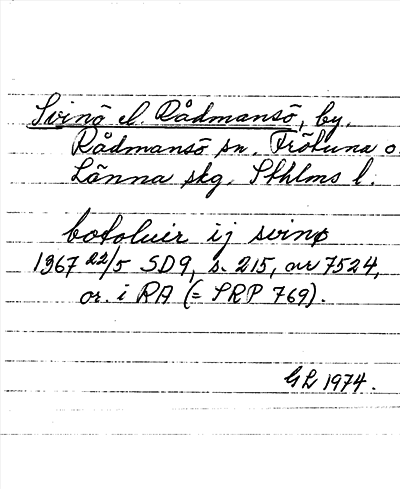 Svinö el. Rådmansö, by,
Rådmansö sn. Frötuna o.
Länna skg. Sthlms l.
botoluir ij svinø
1367 22/5 SD9, s. 215, nr 7524,
or. i RA (= SRP 769).
GL 1974.